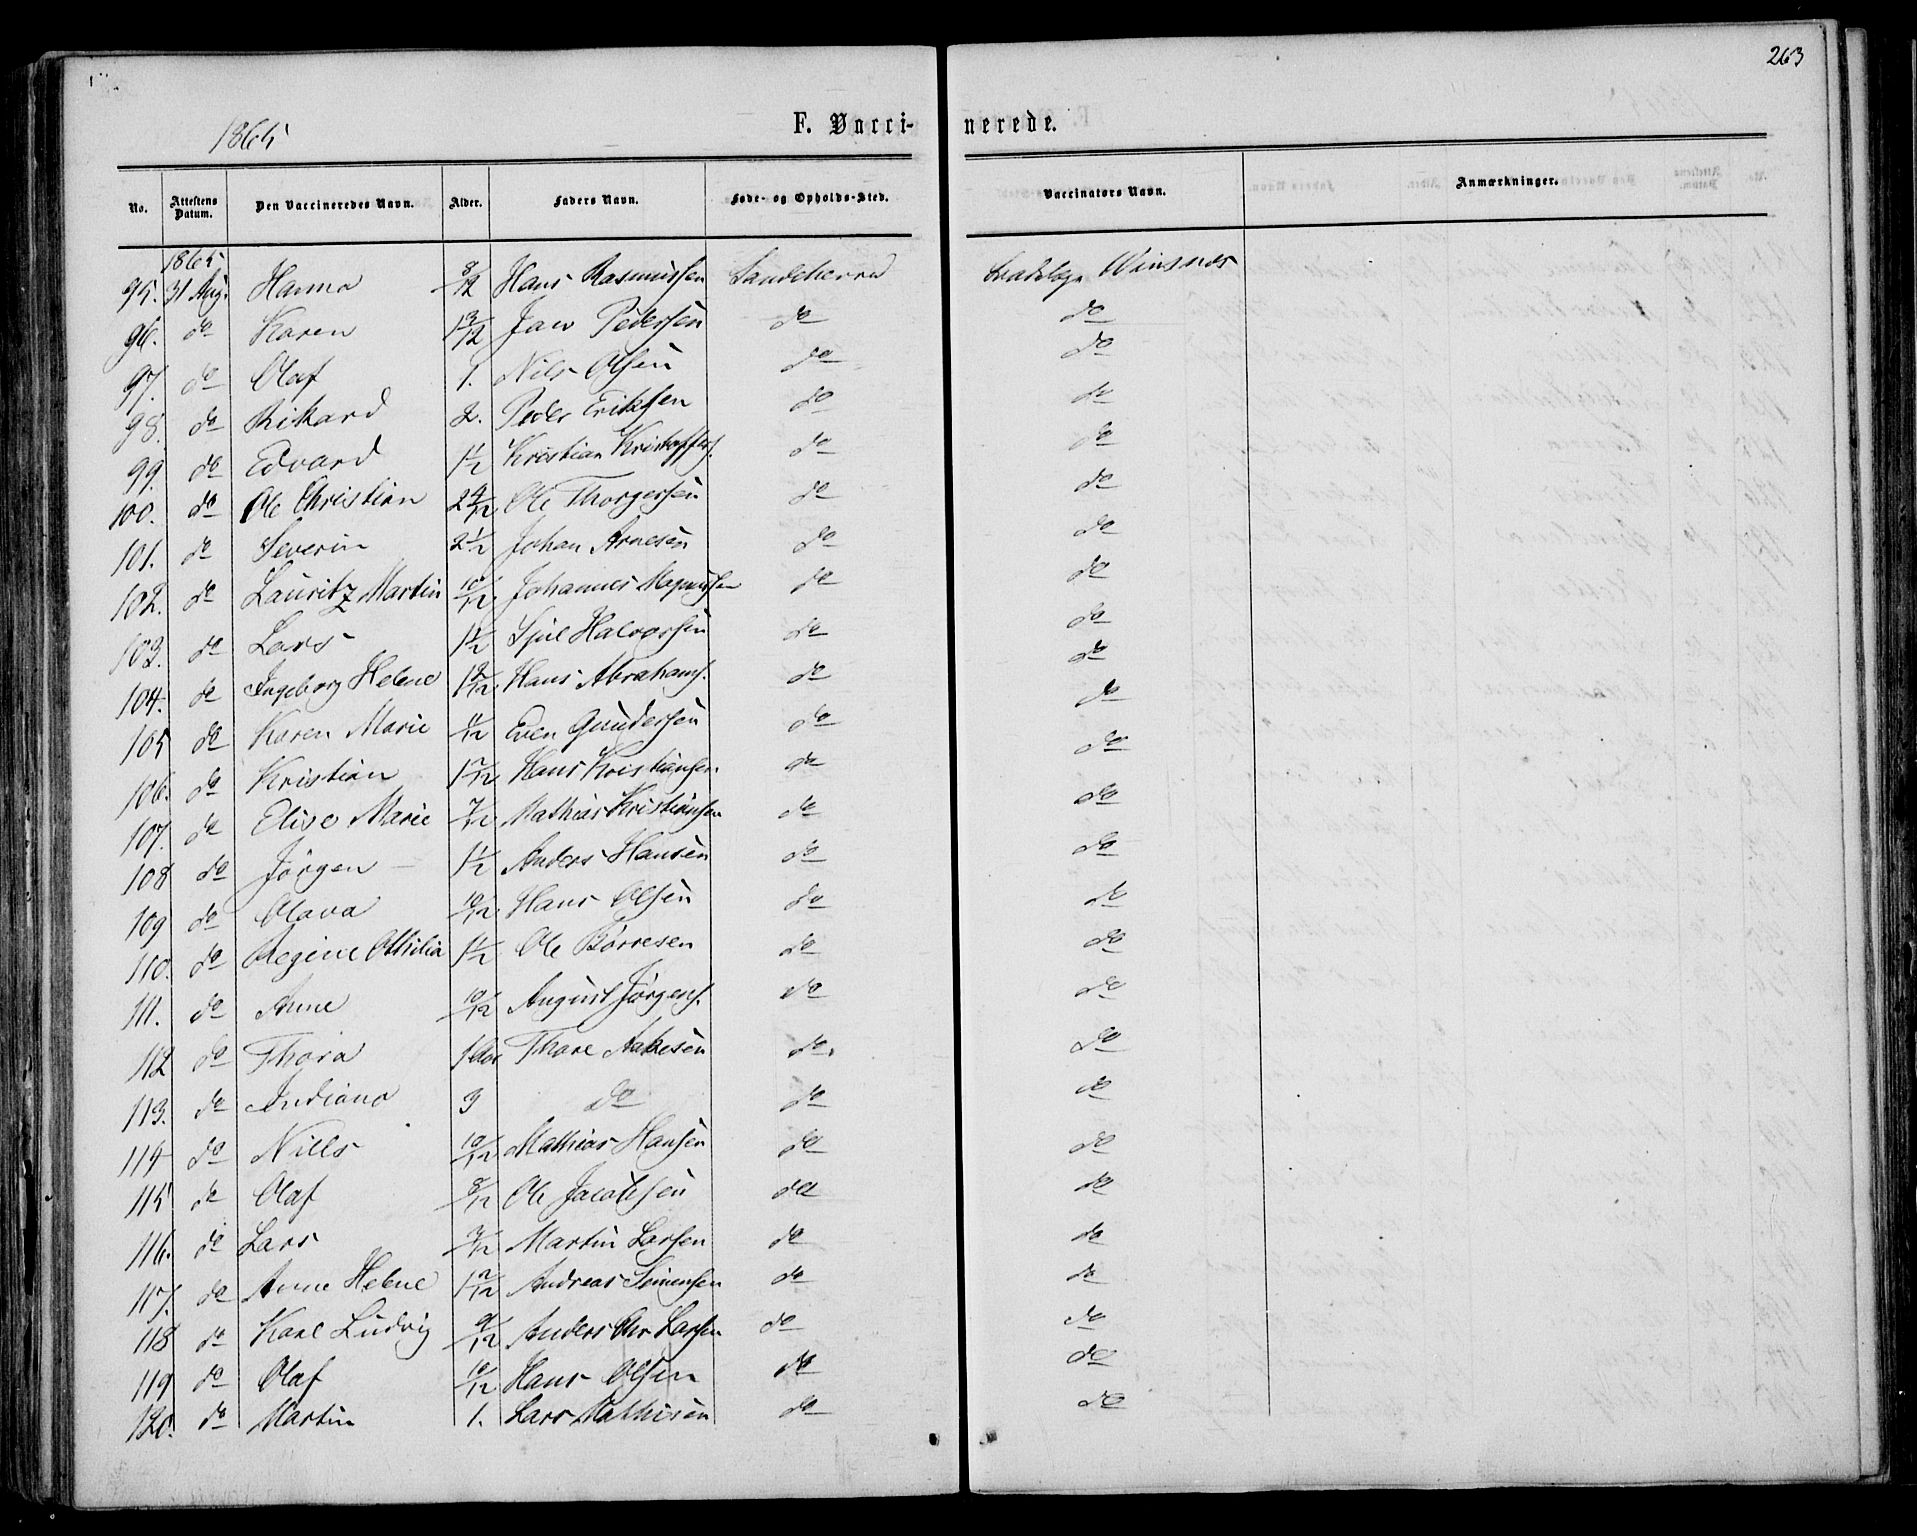 263
1865
F. Vacci- nerede.
No. Attestens Datum. Den Vaccineredes Navn. Alder. Faders Navn. Føde- og Opholds-Sted. Vaccinators Navn. Anmærkninger.
1865
95. 31 Aug. Hanna 8/12 Hans Rasmussen Sandeherred Winsnes
96. do Karen 1 3/12 Jan Pedersen do do
97. do Olaf 1. Nils Olsen do do
98. do Rikard 2. Peder Eriksen do do
99. do Edvard 1 1/2 Kristian Kristoffers. do do
100. do Ole Christian 2 4/12 Ole Thorgersen do do
101. do Severin 2 1/2 Johan Arnesen do do
102. do Lauritz Martin 10/12 Johannes Magnussen do do
103. do Lars 1 1/2 Halvorsen do do
104. do Ingeborg Helene Hans Abrahams. do do
105 do Karen Marie 11/12 Even Gundersen do do
106. do Kristian Hans Kristiansen do do
107. do Elise Marie 7/12 Mathias Kristiansen do do
108 do Jörgen 1 1/2 Anders Hansen do do
109 do Olava 10/12 Hans Olsen do do
110. do Regine Othilia 1 1/2 Ole Börresen do do
111. do Anne 10/12 August Jørgens. do do
112 do Thora 1 Aar Thore Aakesen do. do
113. do Indiana 3 do do do
114 do Nills 10/12 Mathias Hansen do do
115 do Olaf 8/12 Ole Jacobsen do do
116. do Lars Martin Larsen do do
117. do Anne Helene 1 2/12 Andreas Simensen do do
118 do Karl Ludvig 9/12 Anders Chr Larsen do do
119 do Olaf 10/12 Hans Olsen do do
120. do Martin 1. Lars Mathisen do do